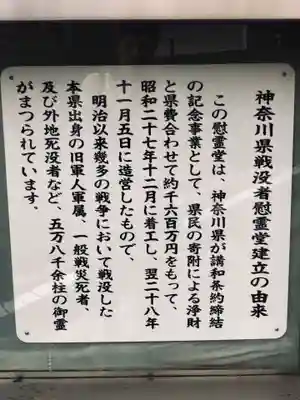 神奈川県戦没者慰霊堂建立の由来
この慰霊堂は、神奈川県が講和条約締結
の記念事業として、県民の寄附による浄財
と県費合わせて約千六百万円をもって、
昭和二十七年十二月に着工し、翌二十八年
十一月五日に造営したもので、
明治以来幾多の戦争において戦没した
本県出身の旧軍人軍属、一般戦災死者、
及び外地死没者など、五万八千余柱の御霊
がまつられています。